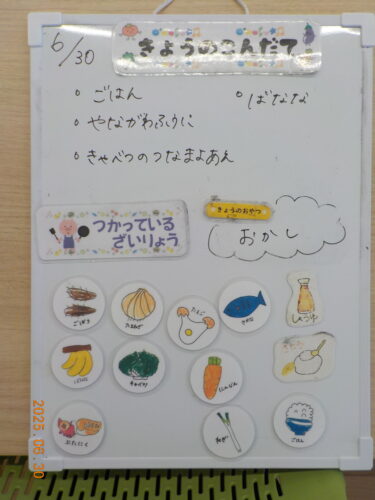 6/30
きょうのこんだて
。ごはん
。ばなな
。やながわふうに
。きゃべつのつなまよあえ
つかっている
ざいりょう
きょうのおやつ
おかし
ごぼう
たまねぎ
たまご
さかな
しょうゆ
ばなな
キャベツ
にんじん
さとう
ぶたにく
ねぎ
ごはん
2025.06.30